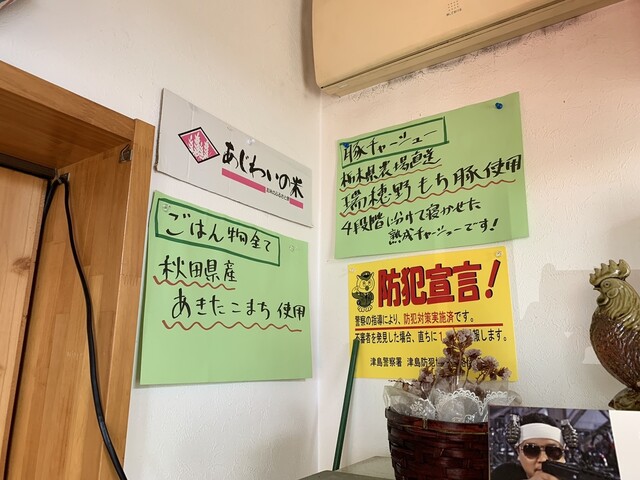 あじわいの米
ごはん物全て
秋田県産
あきたこまち使用
豚チャーシュー
栃木県農場直産
瑞穂野もち豚使用
4段階に分けて寝かせた
熟成チャーシューです!
防犯宣言!
警察の指導により、防犯対策実施済です。
不審者を発見した場合、直ちに1
報します。
津島警察署 津島防犯